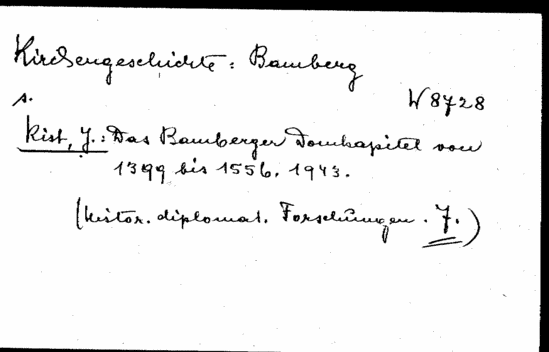 Kirchengeschichte: Bamberg
s.
W 8728
Kist, J.: Das Bamberger Domkapitel von
1399 bis 1556. 1943.
(Histor. diplomat. Forschungen. 7.)